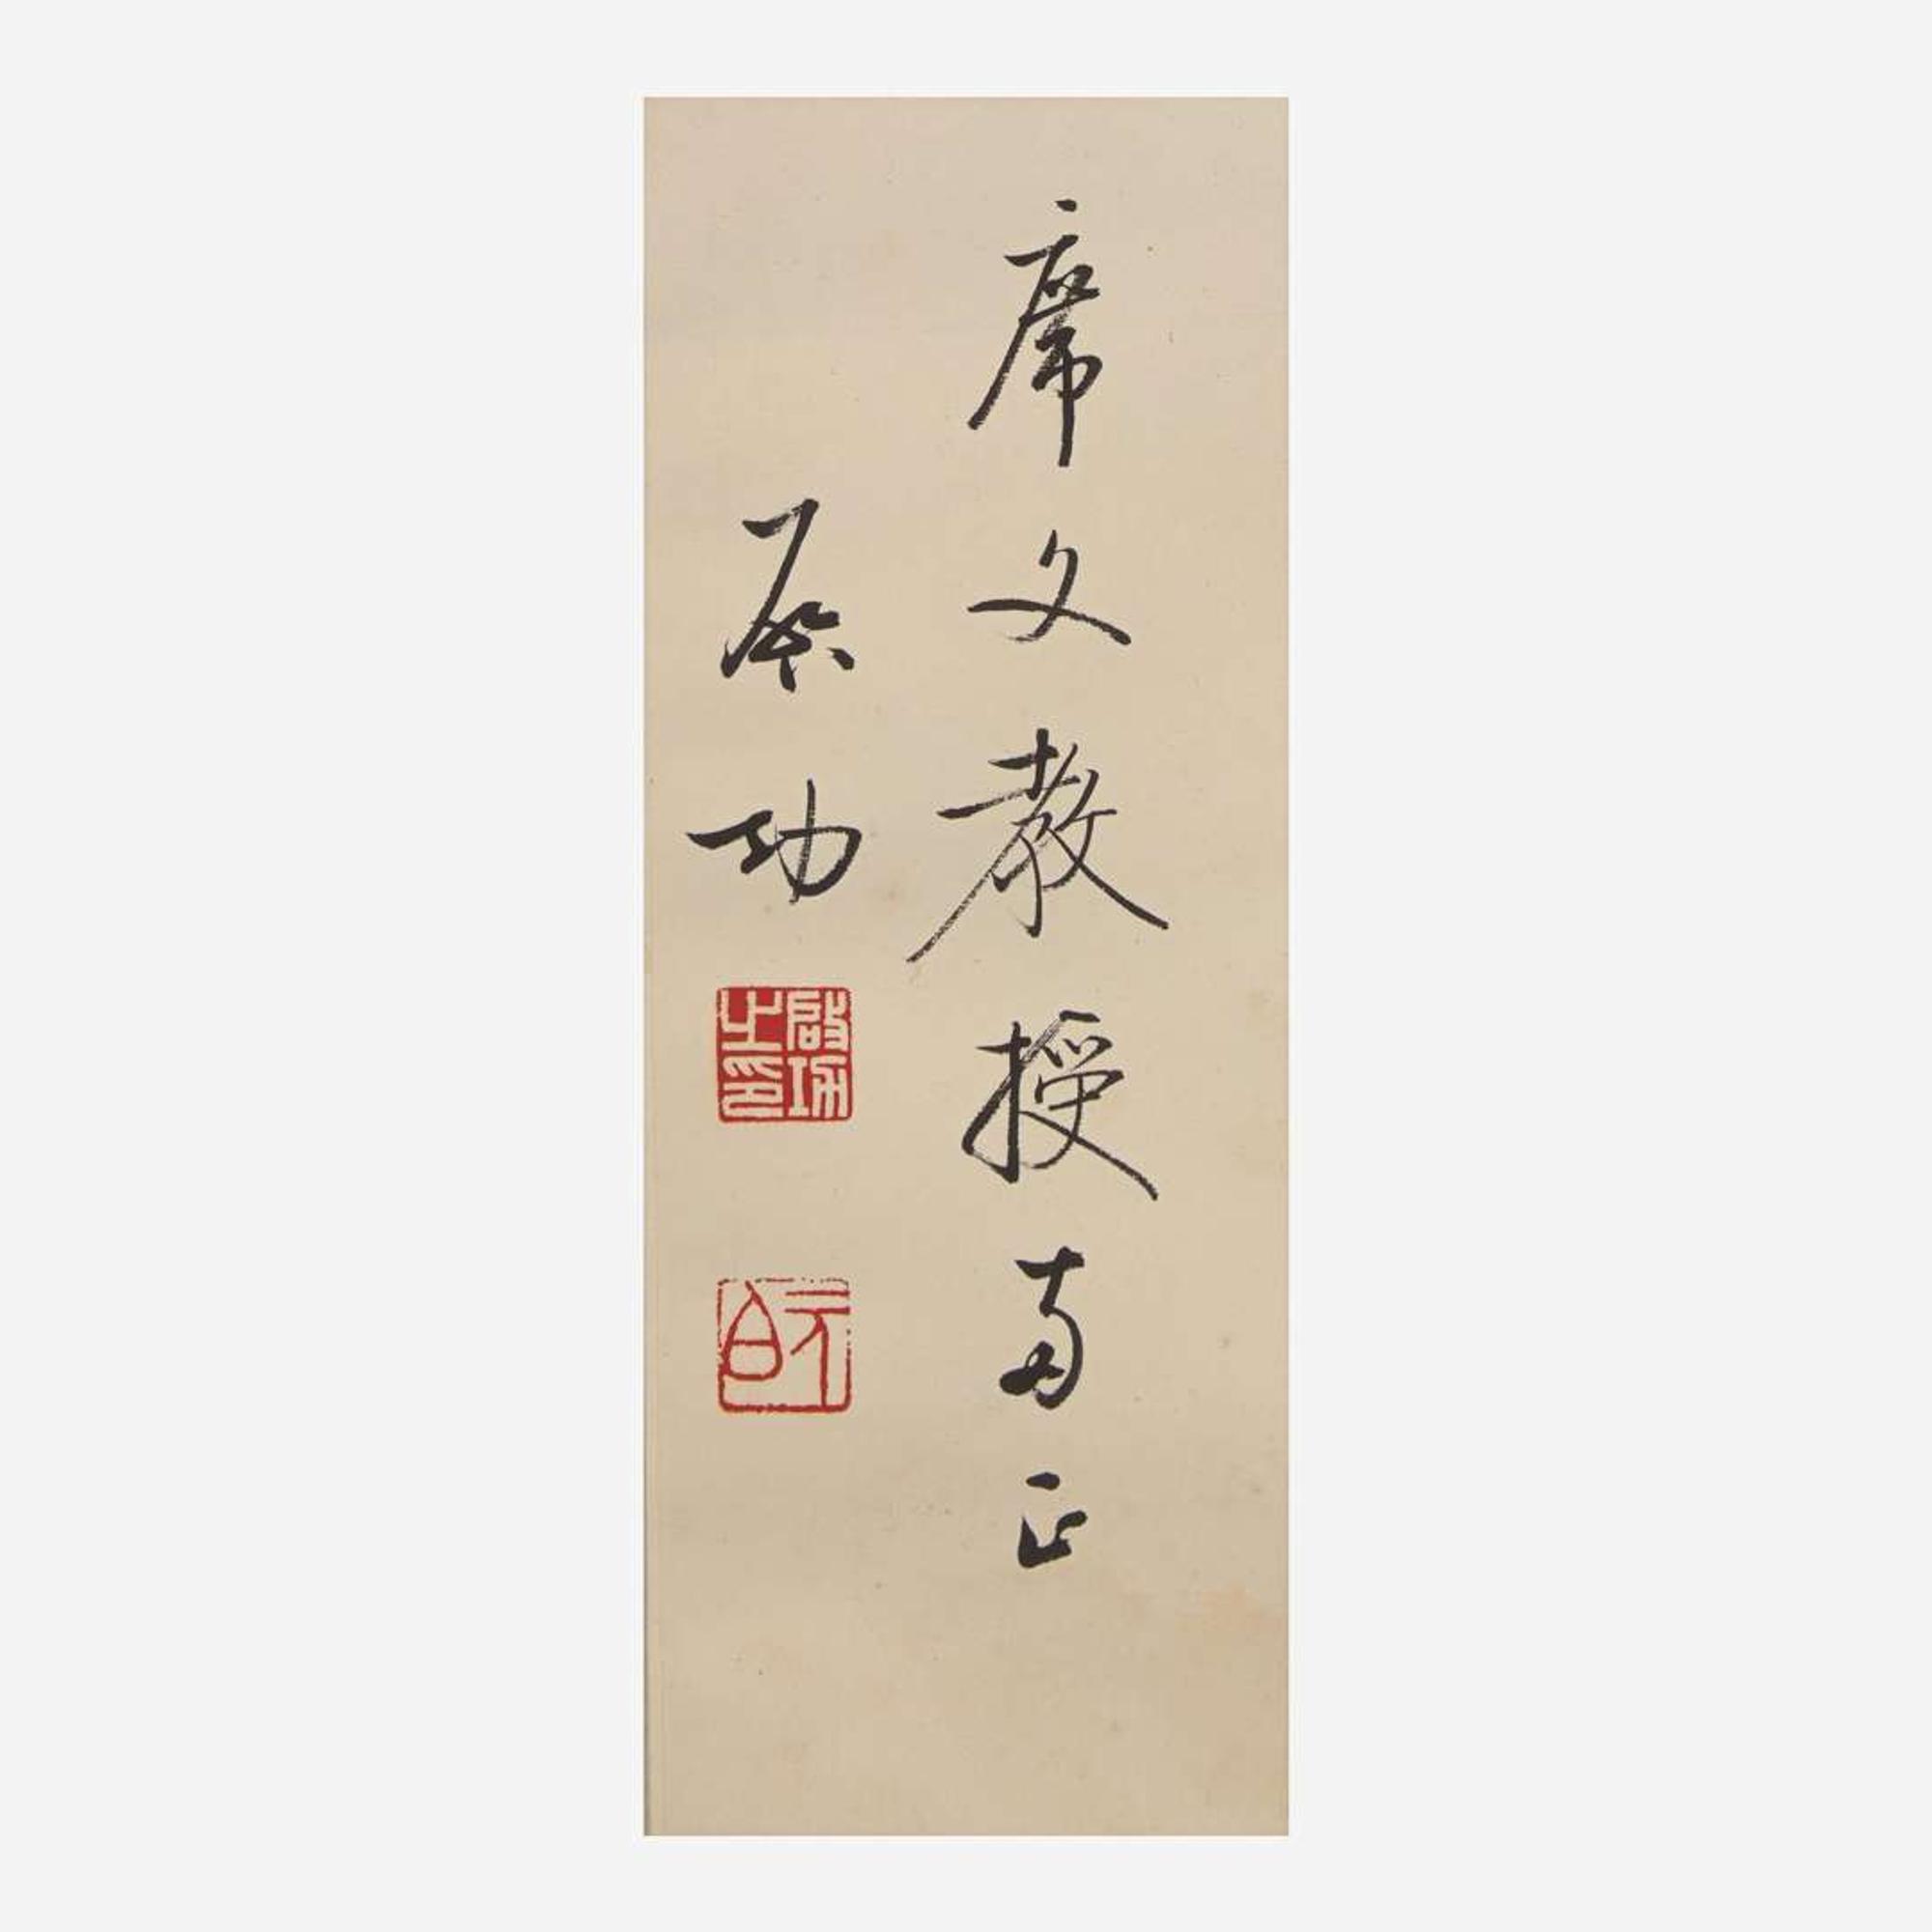 席文教授两正
启功
啟功之印
元白